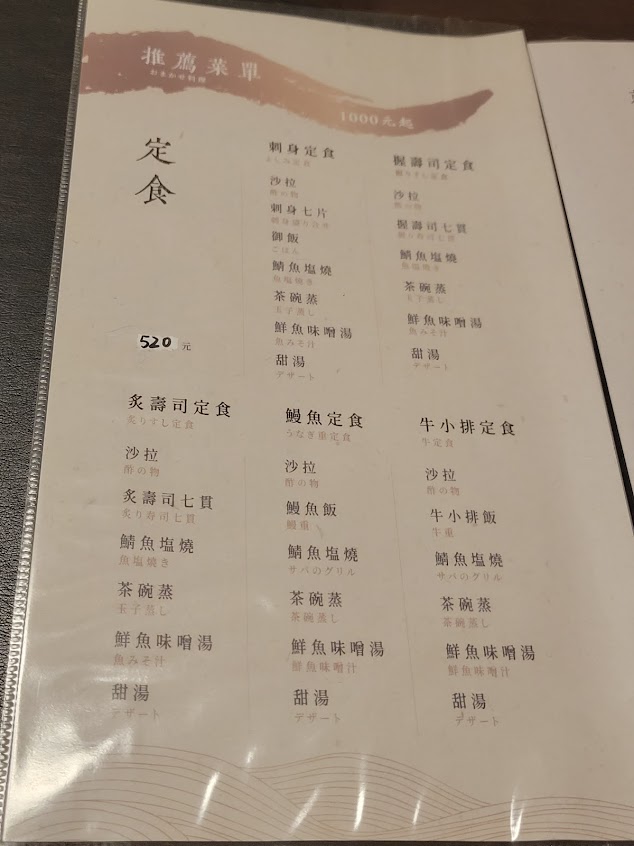 推薦菜單
おまかせ料理
1000元起
定食
520元
刺身定食
さしみ定食
沙拉
酢の物
刺身七片
刺身盛り合せ
御飯
ごはん
鯖魚塩燒
魚塩焼き
茶碗蒸
玉子蒸し
鮮魚味噌湯
魚みそ汁
甜湯
デザート
握壽司定食
握りすし定食
沙拉
酢の物
握壽司七貫
握り寿司七貫
鯖魚塩燒
魚塩焼き
茶碗蒸
玉子蒸し
鮮魚味噌湯
魚みそ汁
甜湯
デザート
炙壽司定食
炙りすし定食
沙拉
酢の物
炙壽司七貫
炙り寿司七貫
鯖魚塩燒
魚塩焼き
茶碗蒸
玉子蒸し
鮮魚味噌湯
魚みそ汁
甜湯
デザート
鰻魚定食
うなぎ重定食
沙拉
酢の物
鰻魚飯
鰻重
鯖魚塩燒
サバのグリル
茶碗蒸
茶碗蒸し
鮮魚味噌湯
鮮魚味噌汁
甜湯
デザート
牛小排定食
牛定食
沙拉
酢の物
牛小排飯
牛重
鯖魚塩燒
サバのグリル
茶碗蒸
茶碗蒸し
鮮魚味噌湯
鮮魚味噌汁
甜湯
デザート